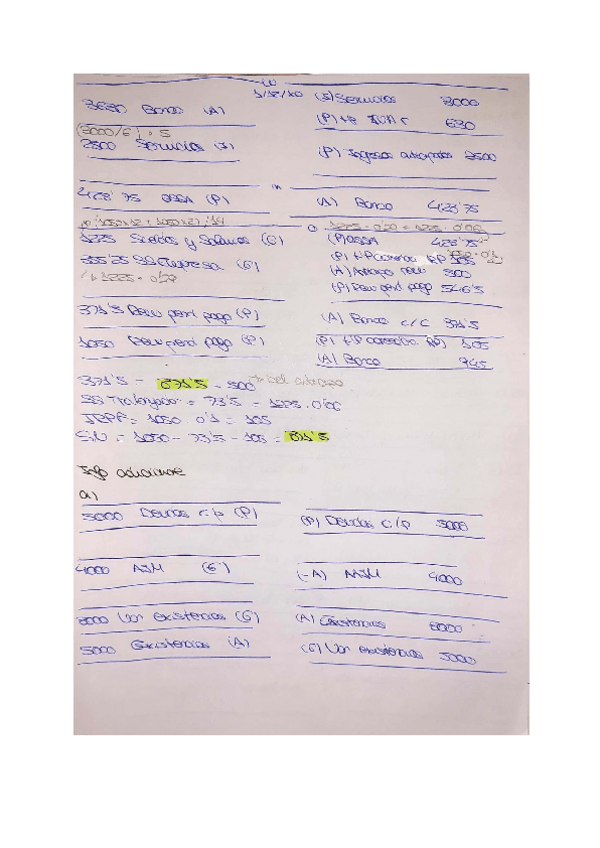 3630 Banco (A)
(I) Servicios 3000
(P) H.P. IVA r 630
(3000/6) . 5
2500 Servicios (I)
(P) Ingresos anticipados 2500
428'75 OSSA (P)
(A) Banco 428'75
1225 Sueldos y Salarios (G)
(P) OSSA 428'75
355'25 SS Empresa (G)
(P) H.P acreedora 105
(A) Anticipo 300
(P) Rem pend pago 546'5
371'5 Rem pend pago (P)
(A) Banco c/c 371'5
1050 Rem pend pago (P)
(P) H.P acreedora 105
(A) Banco 945
371'5 = 671'5 - 300
SS Trabajador = 73'5 = 1225 . 0'06
IRPF = 1050 0'1 = 105
S.N = 1050 - 73'5 - 105 = 871'5
Info adicional
a)
5000 Deudas c/p (P)
(P) Deudas c/p 5000
4000 AIM (G)
(-A) AAIM 4000
8000 Var existencias (G)
(A) Existencias 8000
5000 Existencias (A)
(G) Var existencias 5000